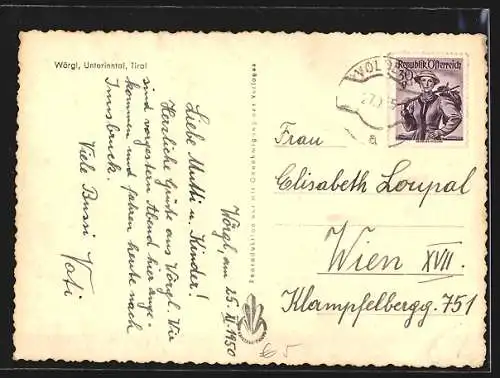 Wörgl, Unterinntal, Tirol
Wörgl, am 25. II. 1950
Liebe Mutti u. Kinder!
Herzliche Grüße aus Wörgl. Wir
sind vorgestern Abend hier ange-
kommen und fahren heute nach
Innsbruck.
Viele Bussi Vati
Republik Österreich
30
Frau
Elisabeth Loupal
Wien XVII.
Klampfelbergg. 751
65